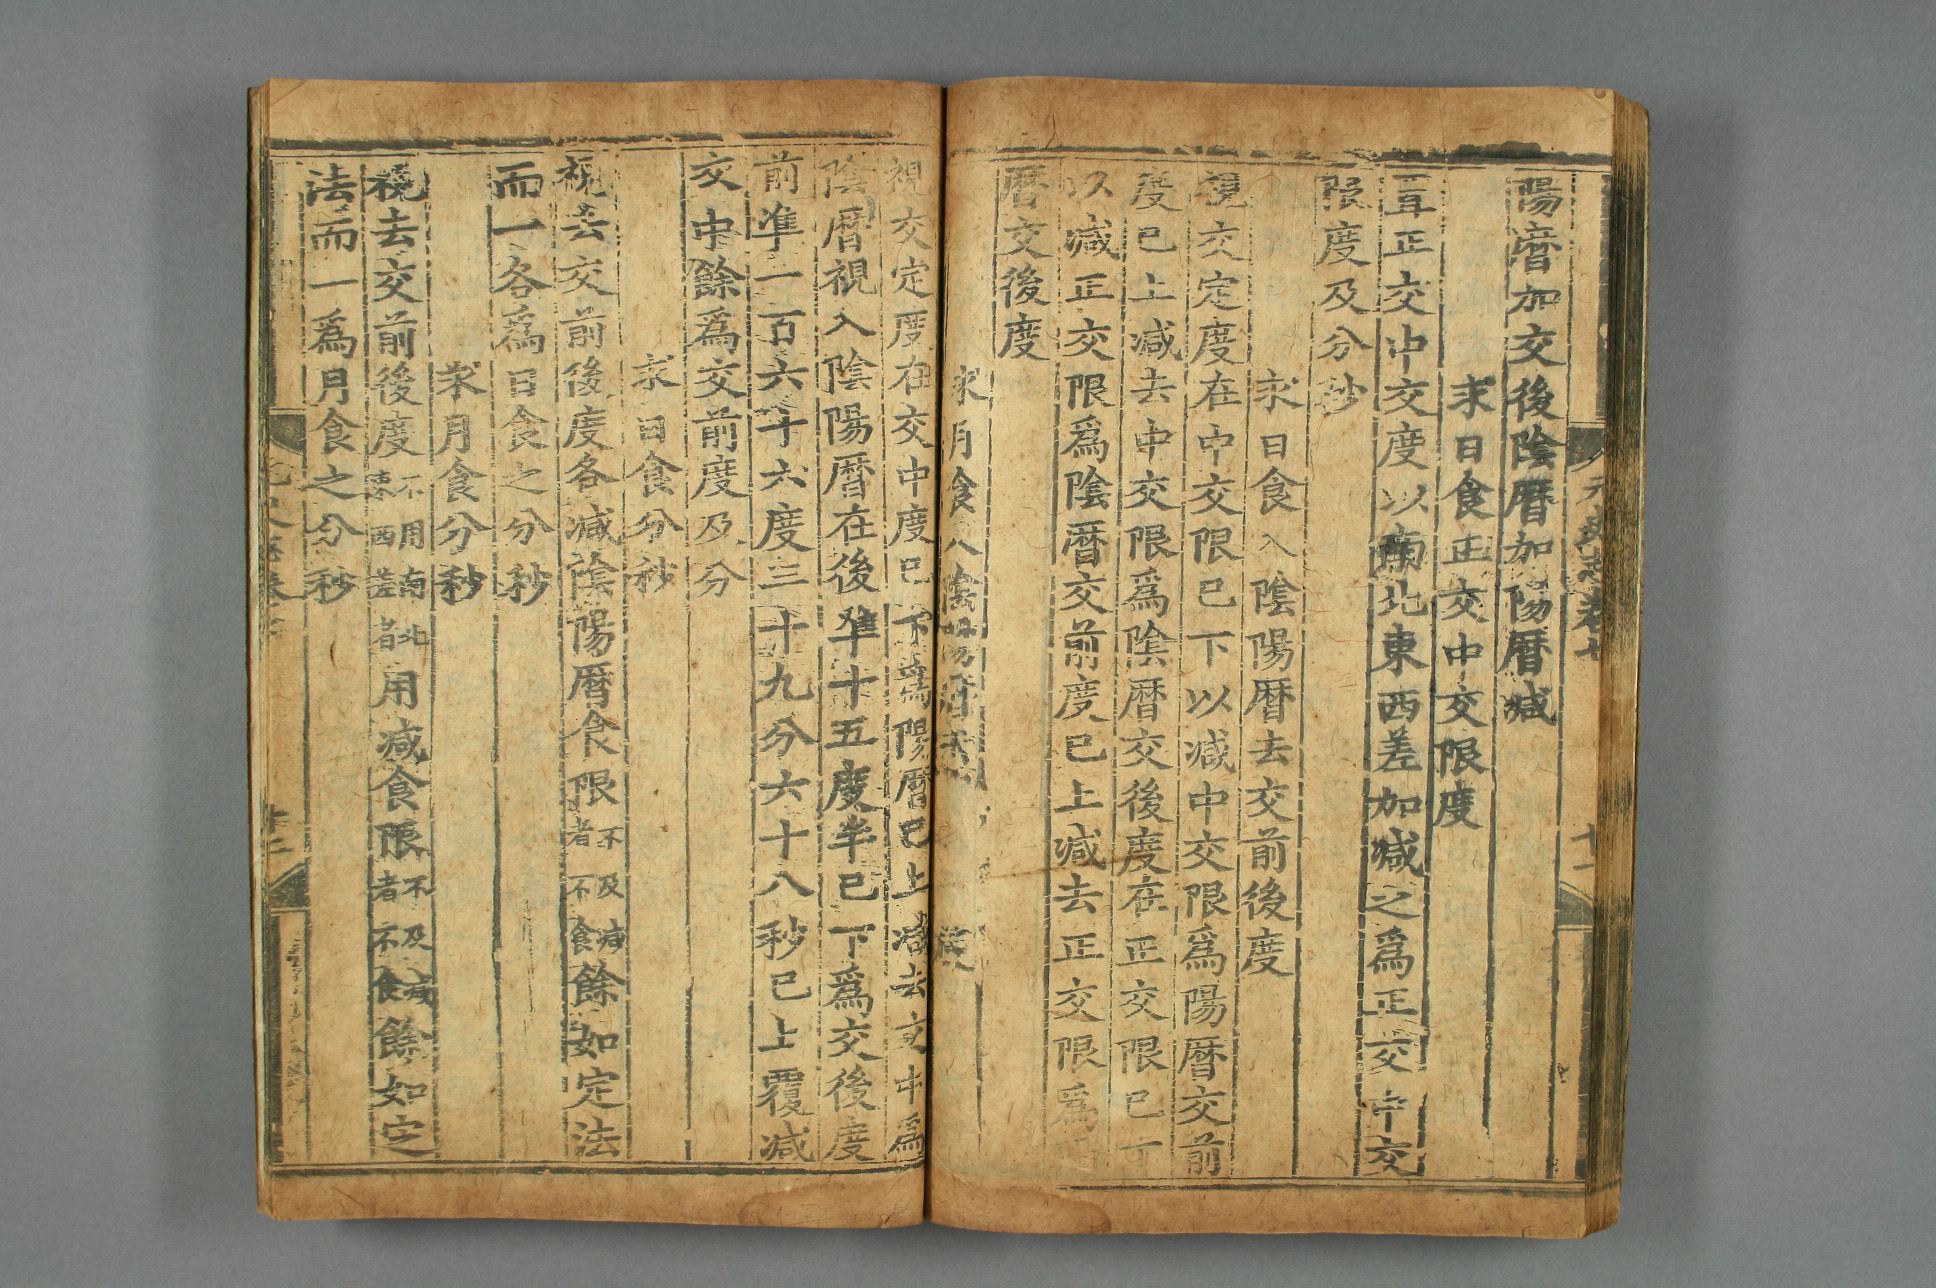 陽曆加交後陰曆加陽曆減
求日食正交中交限度
置正交中交度以南北東西差加減之爲正交中交
限度及分秒
求日食入陰陽曆去交前後度
視交定度在中交限已下以減中交限爲陽曆交前
度已上減去中交限爲陰曆交後度在正交限已下
以減正交限爲陰曆交前度已上減去正交限爲陽
曆交後度
求月食入陰陽曆去交前後度
視交定度在交中度已下爲陽曆已上減去交中爲
陰曆視入陰陽曆在後準十五度半已下爲交後度
前準一百六十六度三十九分六十八秒已上覆減
交中餘爲交前度及分
求日食分秒
視去交前後度各減陰陽曆食限不及減者不食餘如定法
而一各爲日食之分秒
求月食分秒
視去交前後度不用南北東西差者用減食限不及減者不食餘如定
法而一爲月食之分秒